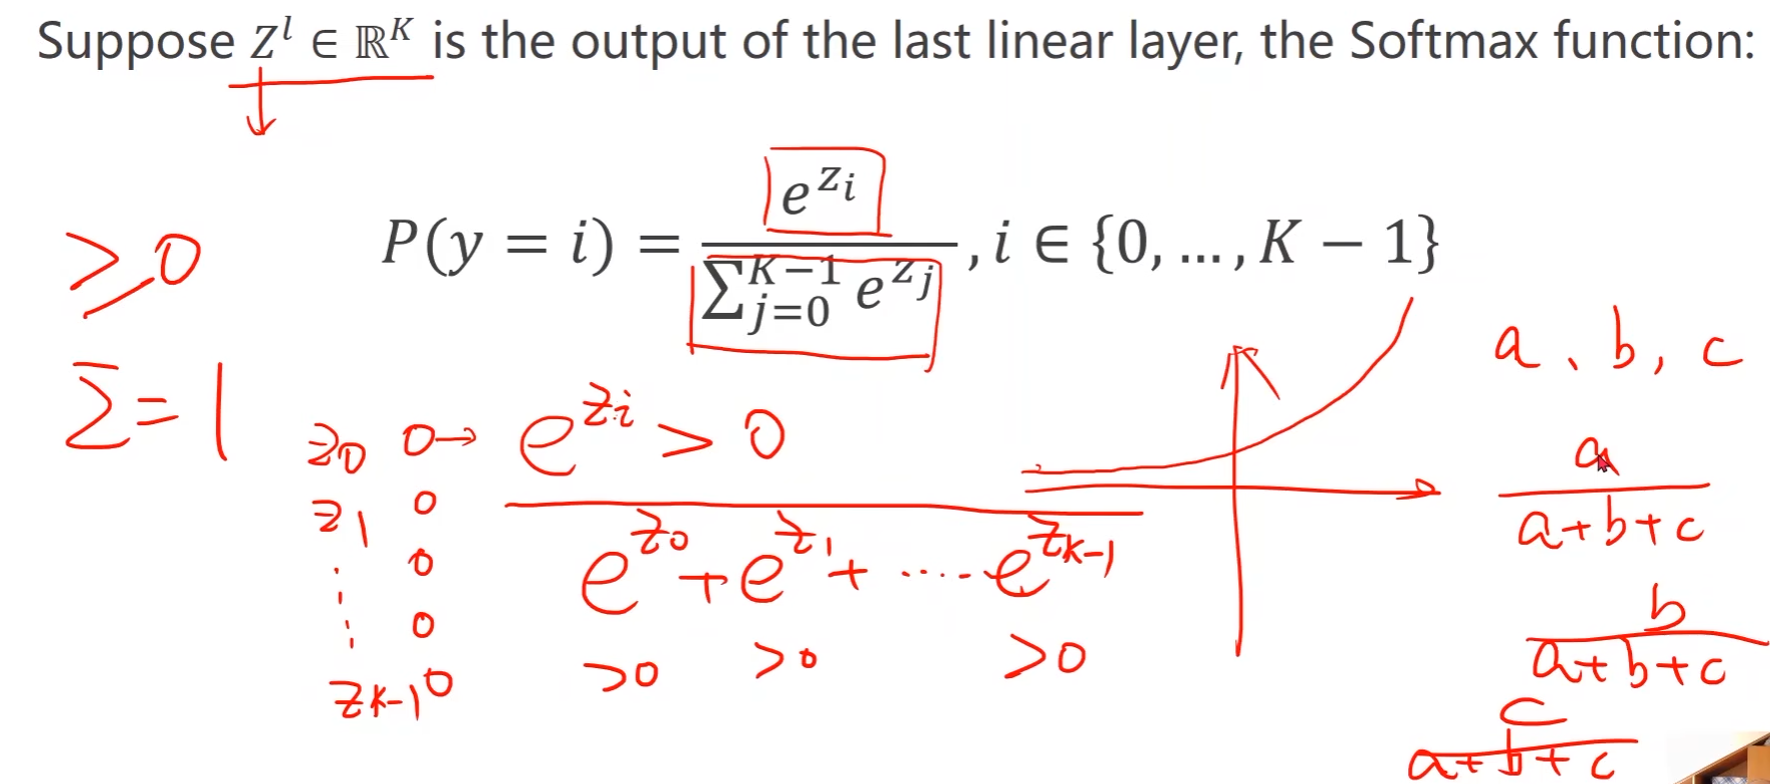 Suppose Z^l ∈ ℝ^K is the output of the last linear layer, the Softmax function:
P(y = i) = e^{z_i} / ∑_{j=0}^{K−1} e^{z_j} , i ∈ {0, … , K − 1}
⩾0
Σ=1
a、b, c
z_0 0→ e^{z_i} > 0
z_1 0
e^{z_0} + e^{z_1} + ····· e^{z_{k-1}}
0
0
z_{k-1} 0
>0 >0 >0
a / a+b+c
b / a+b+c
c / a+b+c